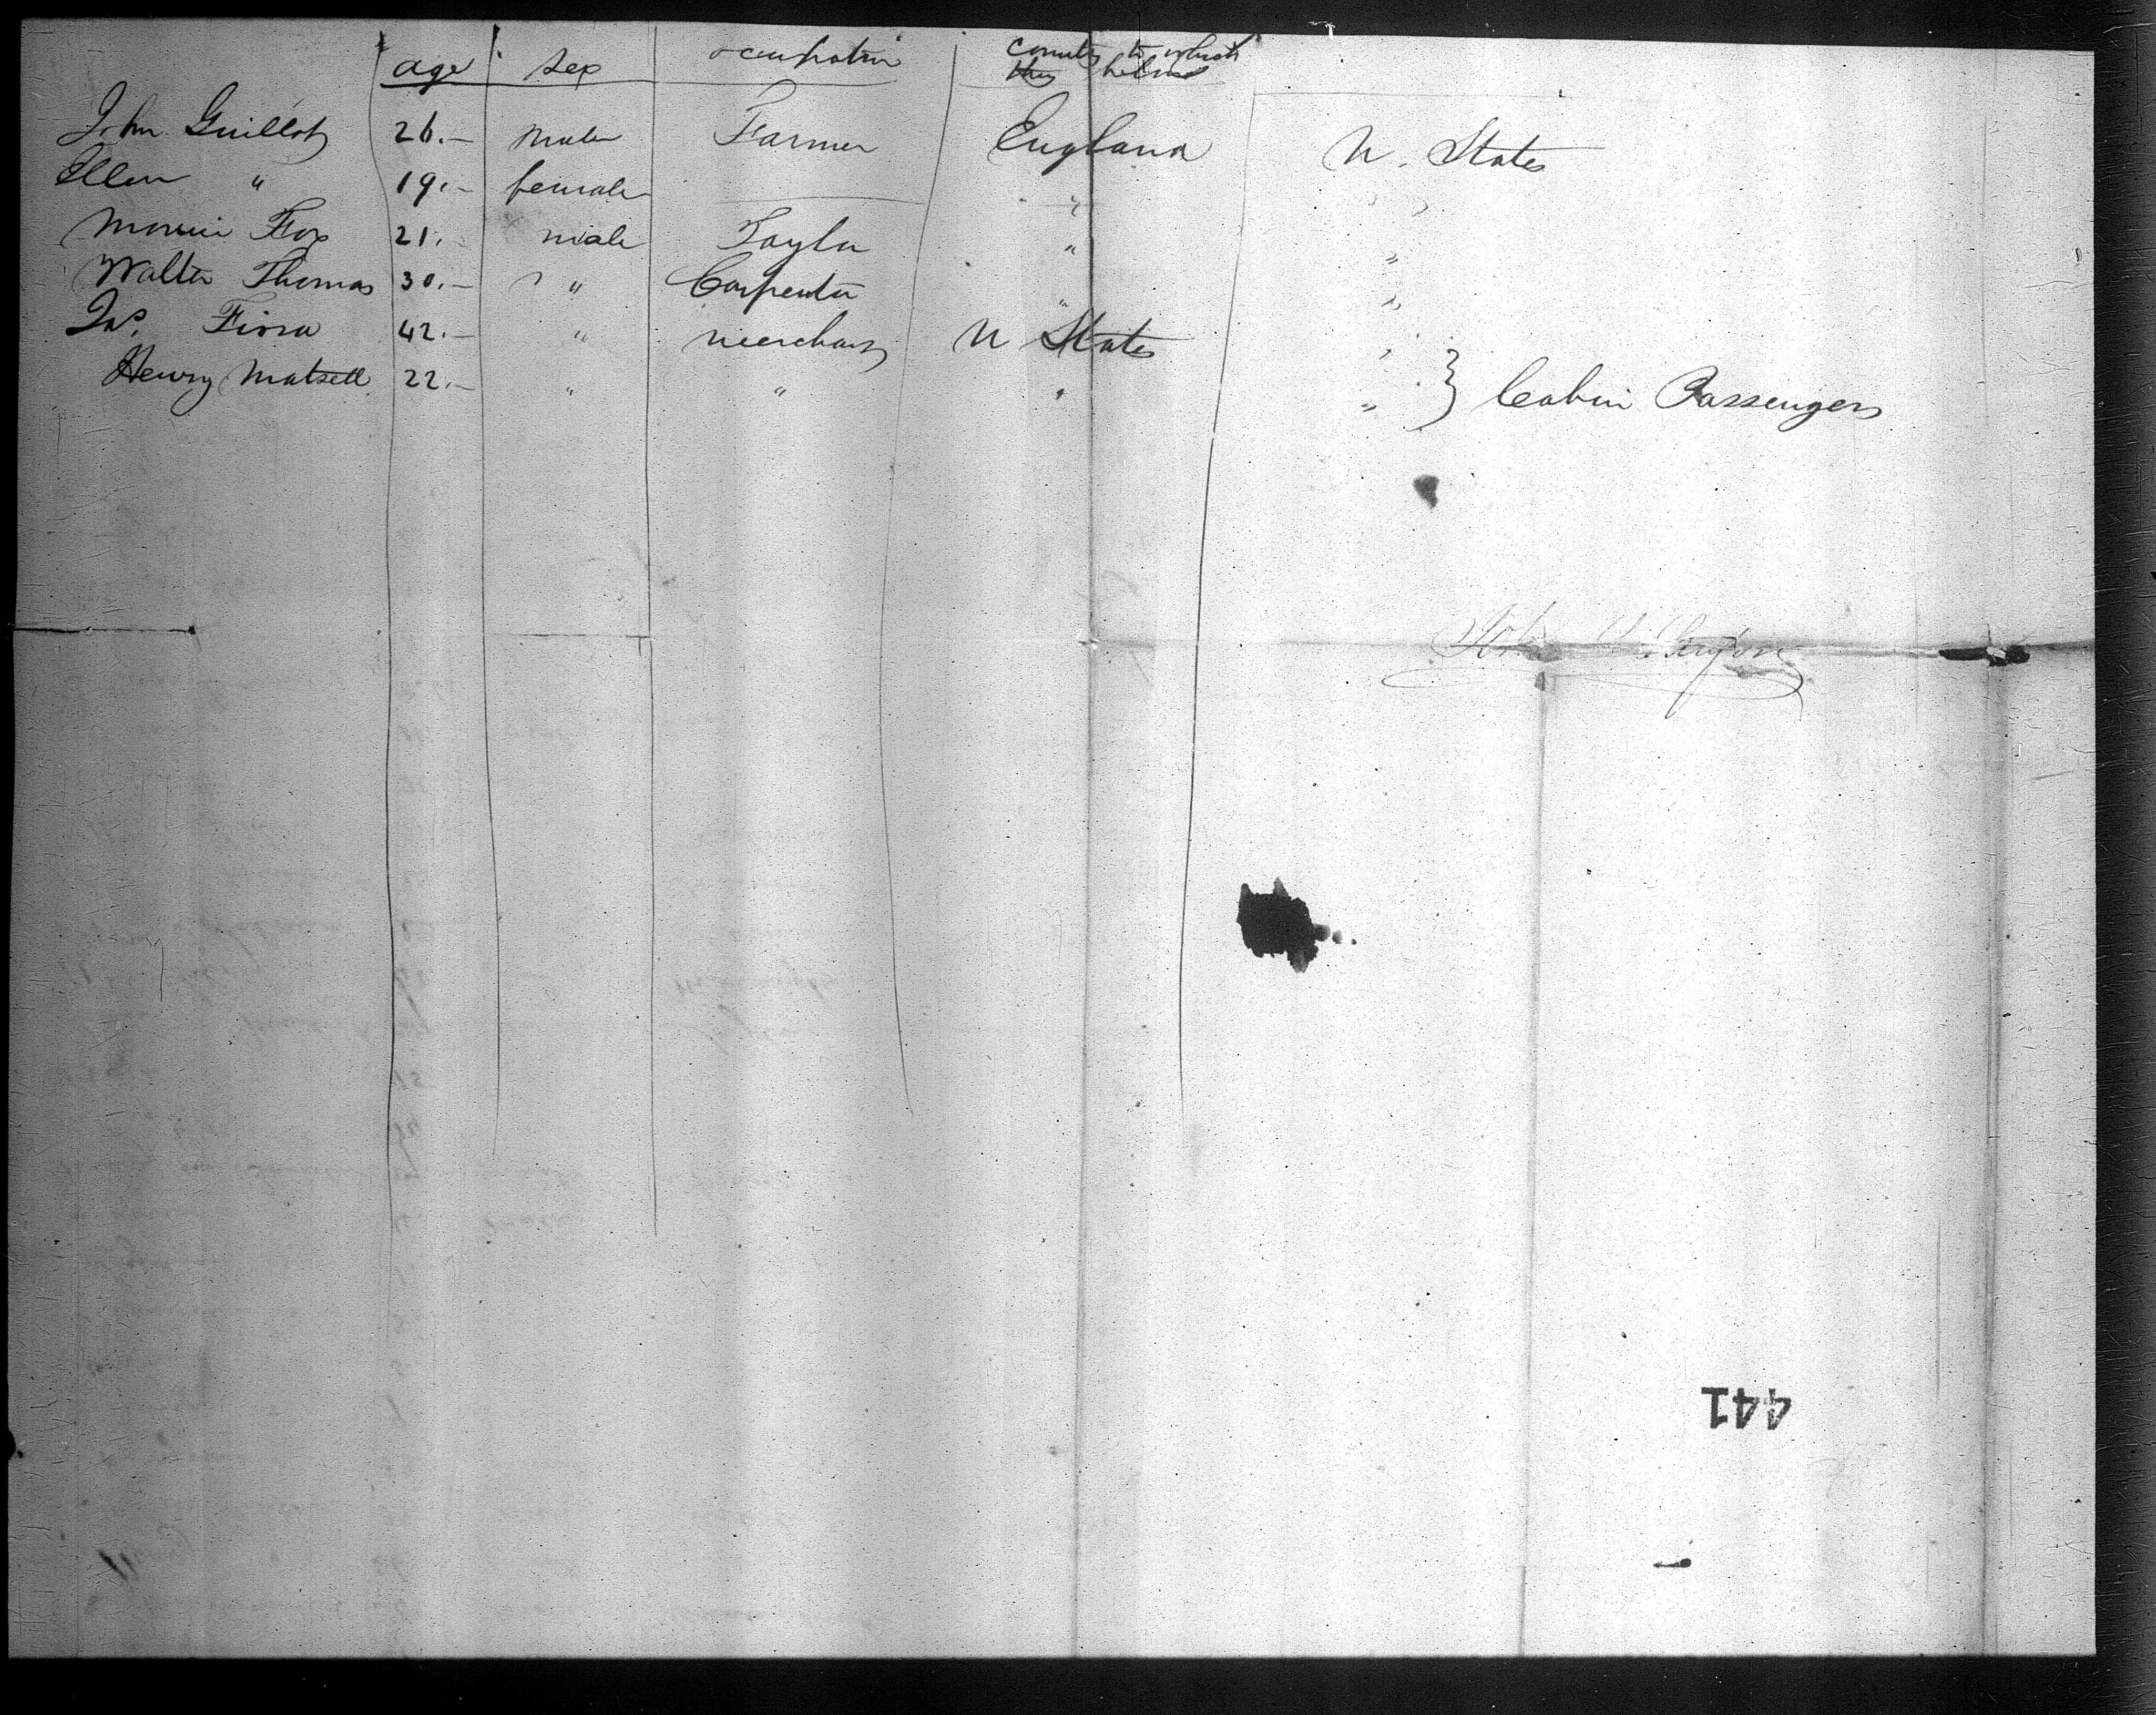 age sex occupation country to which
they belong
John Guillot 26.- male Farmer England U. States
Ellen " 19.- female "
Morris Fox 21. male Taylor " "
Walter Thomas 30.- " Carpenter " "
Jas. 42.- " merchant U States "
Henry Matsell 22.- " " " " } Cabin Passengers
441